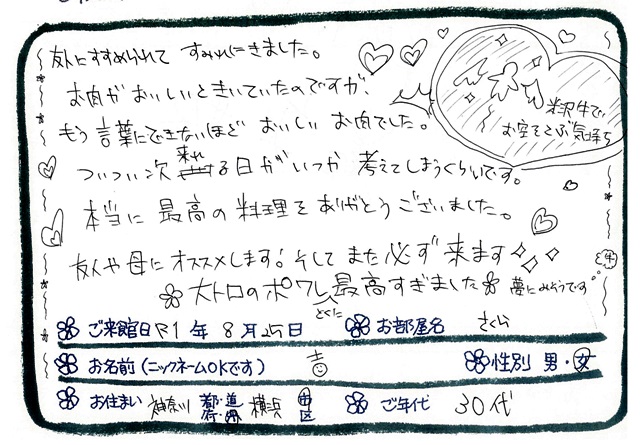 友人にすすめられて すみれにきました。
お肉がおいしいときいていたのですが、
もう言葉にできないほど おいしい お肉でした。
米沢牛で
お空をとぶ気持ち
ついつい次 来れる日がいつか 考えてしまうくらいです。
本当に 最高の料理を ありがとうございました。
友人や母に オススメします! そして また 必ず 来ます
牛
大トロのポワレ とくに 最高すぎました 夢にみそうです
ご来館日 R1 年 8 月 25 日 お部屋名 さくら
お名前(ニックネームOKです) 性別 男・女
お住まい 神奈川 都・道・府・県 横浜 市区 ご年代 30代